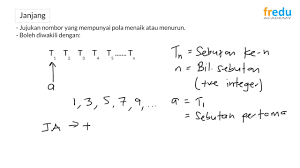 Janjang
fredu
- Jujukan nombor yang mempunyai pola menaik atau menurun.
- Boleh diwakili dengan:
T1 T2 T3 T4 T5 ...... Tn
a
Tn = Sebutan ke-n
n = Bil. sebutan
(+ve integer)
1, 3, 5, 7, 9, ...
a = T1
= Sebutan pertama
JA → +